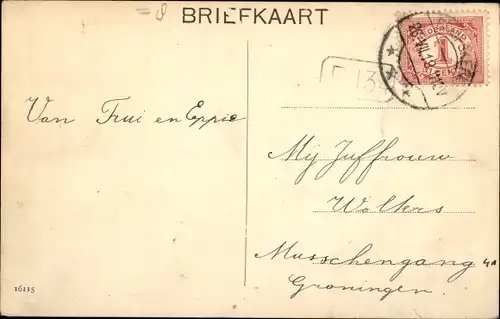 BRIEFKAART
NEDERLAND
1
26.VII.18
D 13
Van Trui en Eppie
Mej Juffrouw
Wolters
Musschengang 4A
Groningen.
16115